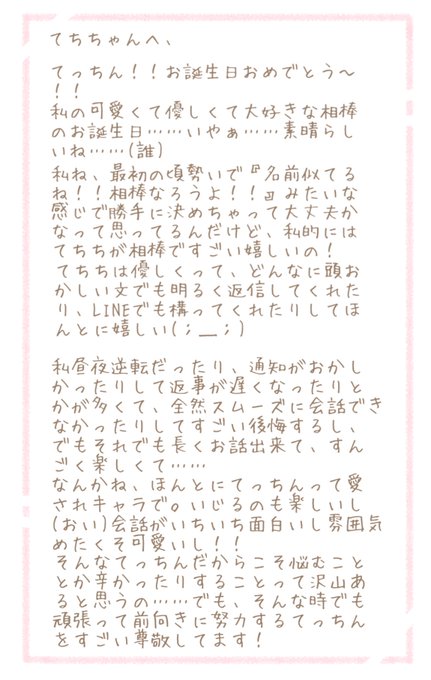 てちちゃんへ、
てっちん！！お誕生日おめでとう〜
！！
私の可愛くて優しくて大好きな相棒
のお誕生日……いやぁ……素晴らし
いね……(誰)
私ね、最初の頃勢いで『名前似てる
ね！！相棒なろうよ！！』みたいな
感じで勝手に決めちゃって大丈夫か
なって思ってるんだけど、私的には
てちちが相棒ですごい嬉しいの！
てちちは優しくって、どんなに頭お
かしい文でも明るく返信してくれた
り、LINEでも構ってくれたりしてほ
んとに嬉しい(；＿；)
私昼夜逆転だったり、通知がおかし
かったりして返事が遅くなったりと
かが多くて、全然スムーズに会話でき
なかったりしてすごい後悔するし、
でもそれでも長くお話出来て、すん
ごく楽しくて……
なんかね、ほんとにてっちんって愛
されキャラで。いじるのも楽しいし
(おい)会話がいちいち面白いし雰囲気
めたくそ可愛いし！！
そんなてっちんだからこそ悩むこと
とか辛かったりすることって沢山あ
ると思うの……でも、そんな時でも
頑張って前向きに努力するてっちん
をすごい尊敬してます！